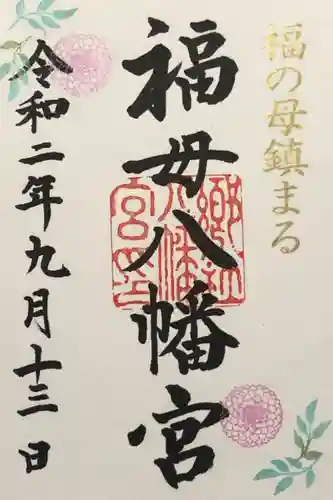 福の母鎮まる
福母八幡宮
郷社
八幡
宮印
令和二年九月十三日